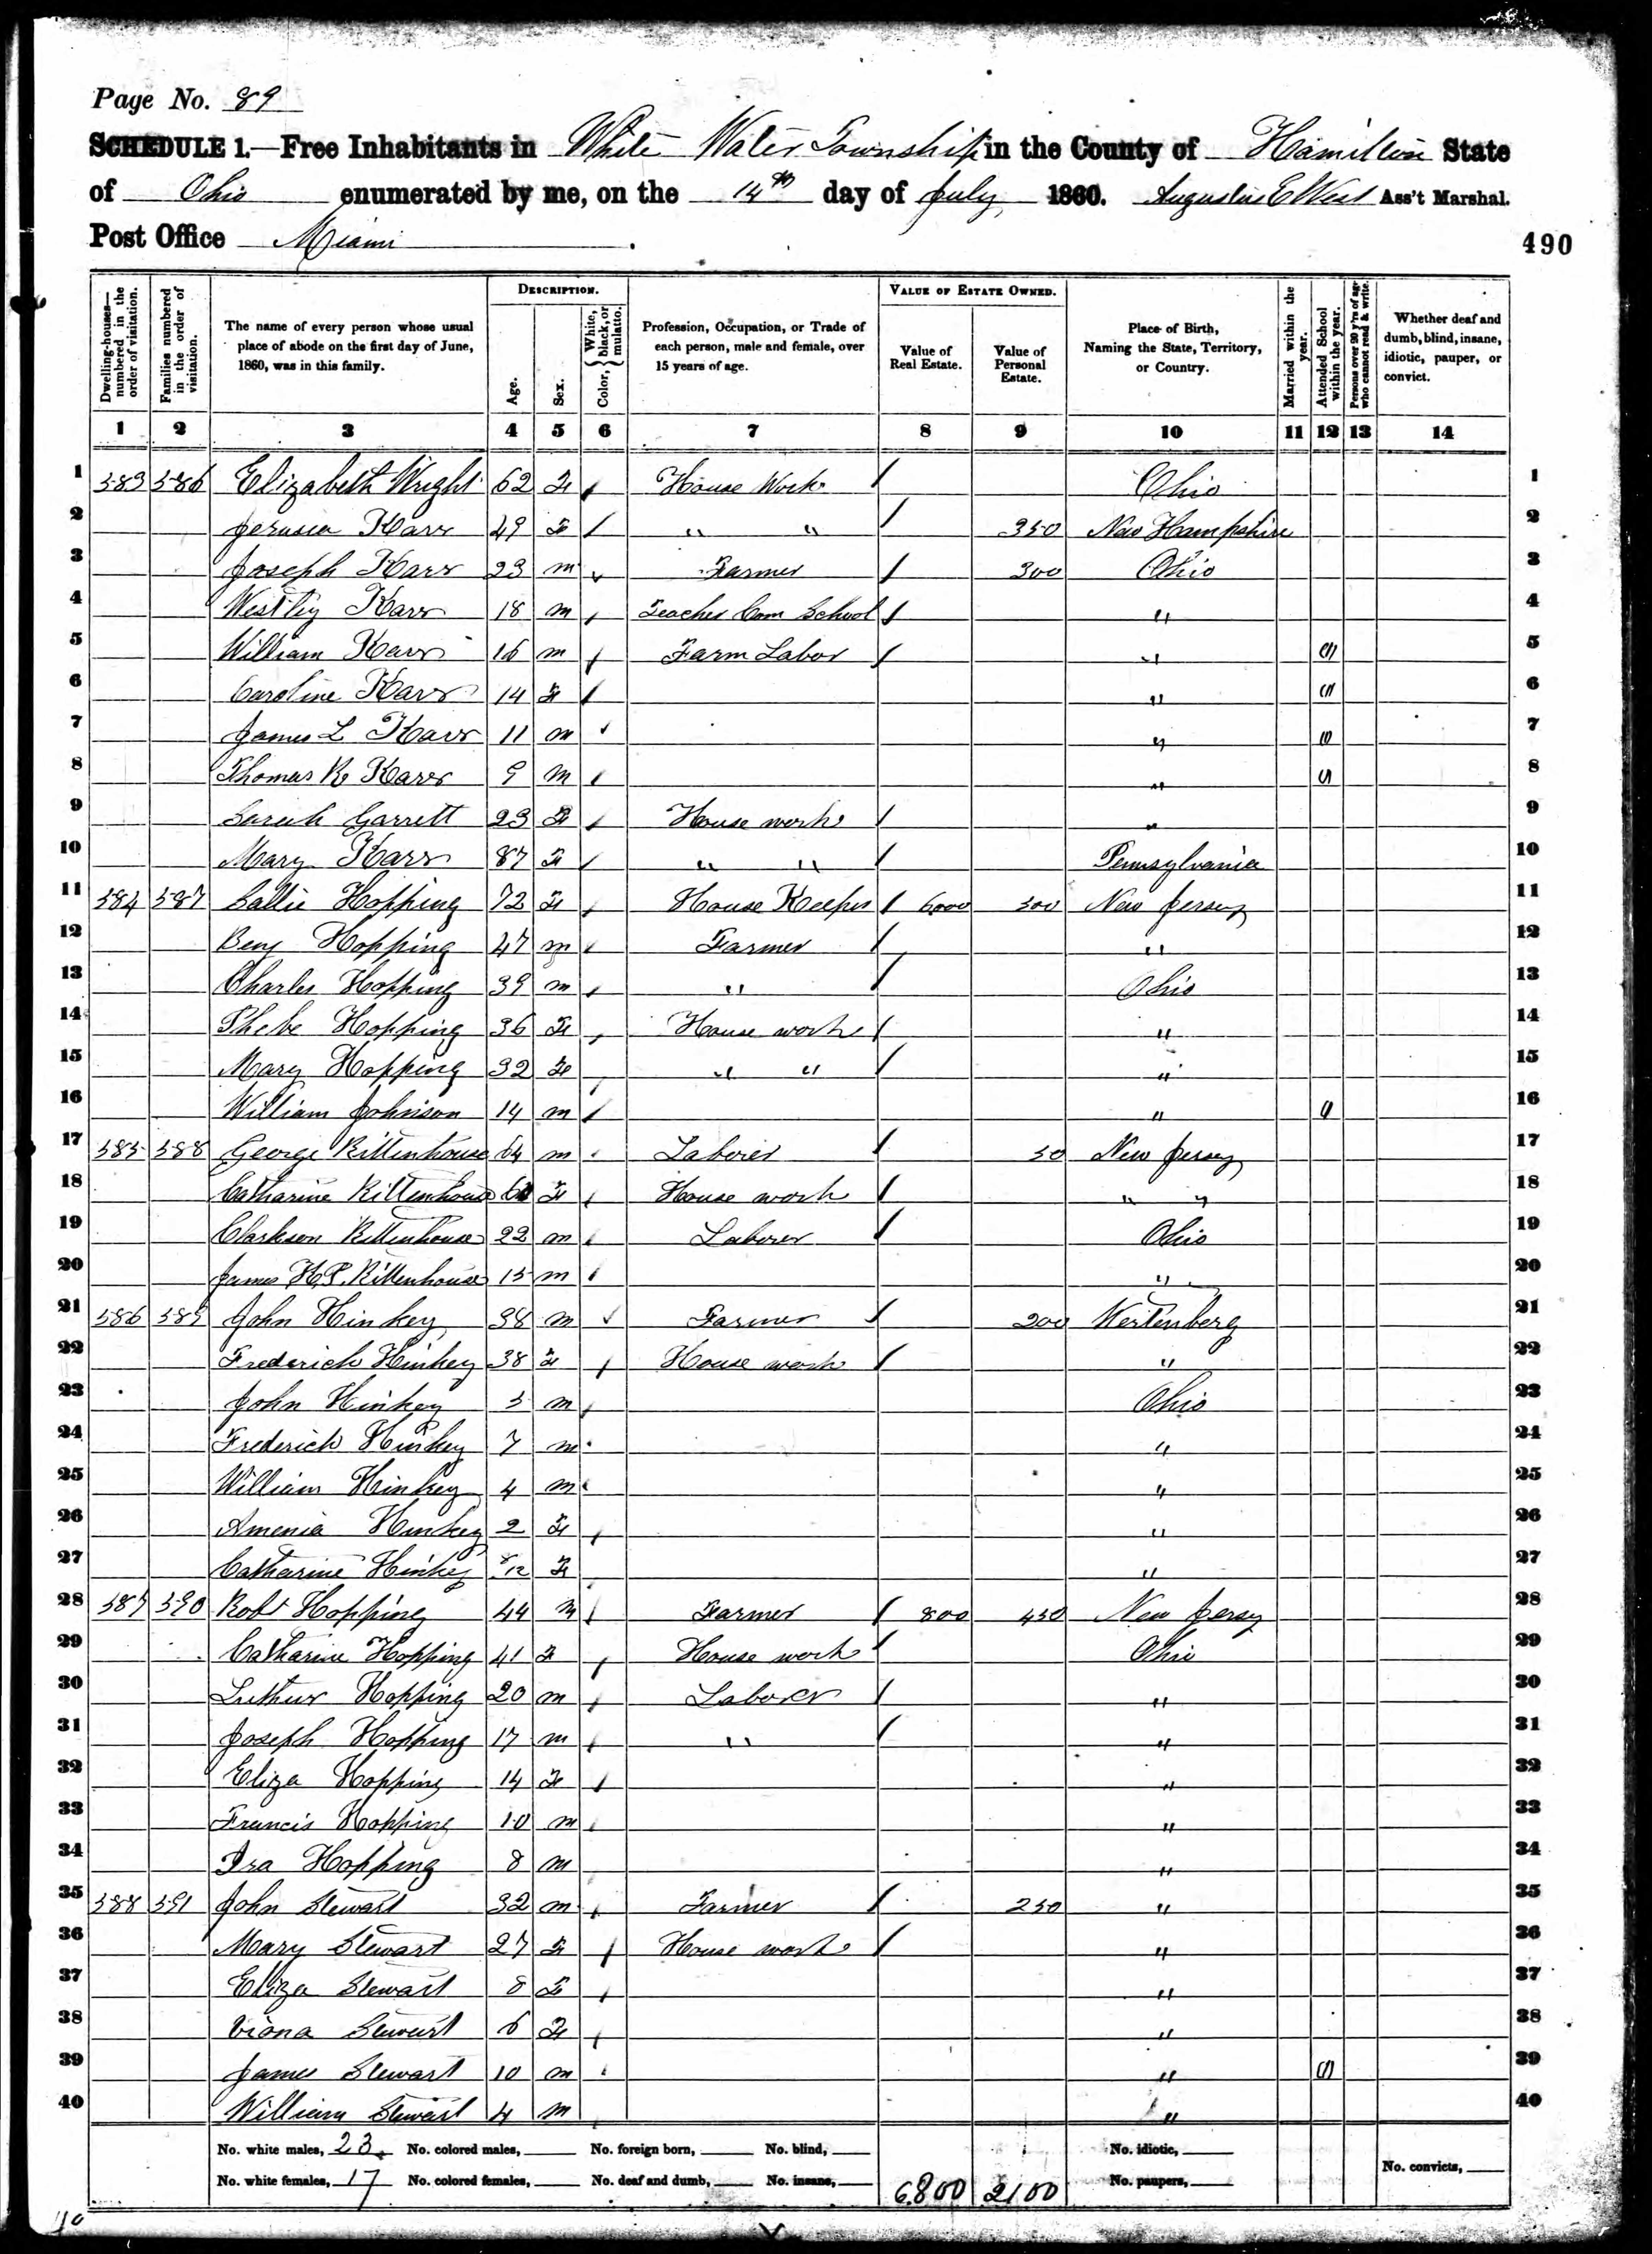 Page No. 89
SCHEDULE 1.—Free Inhabitants in White Water Township in the County of Hamilton State
of Ohio enumerated by me, on the 14th day of July 1860. Augustus E West Ass't Marshal.
Post Office Miami
490
DESCRIPTION. VALUE OF ESTATE OWNED.
Dwelling-houses—numbered in the order of visitation. Families numbered in the order of visitation. The name of every person whose usual place of abode on the first day of June, 1860, was in this family. Age. Sex. Color, { White, black, or mulatto. Profession, Occupation, or Trade of each person, male and female, over 15 years of age. Value of Real Estate. Value of Personal Estate. Place of Birth, Naming the State, Territory, or Country. Married within the year. Attended School within the year. Persons over 20 y'rs of age who cannot read & write. Whether deaf and dumb, blind, insane, idiotic, pauper, or convict.
1 2 3 4 5 6 7 8 9 10 11 12 13 14
1 583 586 Elizabeth Wright 62 F / House Work / Ohio 1
2 Jerusia Karr 49 F / " " / 350 New Hampshire 2
3 Joseph Karr 23 m / Farmer / 300 Ohio 3
4 Westley Karr 18 m / Teacher Com School / " 4
5 William Karr 16 m / Farm Labor / " 1 5
6 Caroline Karr 14 F / " 1 6
7 James L Karr 11 m / " 1 7
8 Thomas R Karr 9 m / " 1 8
9 Sarah Garrett 23 F / House work / " 9
10 Mary Karr 87 F / " " / Pennsylvania 10
11 584 587 Sallie Hopping 72 F / House Keeper / 6000 300 New Jersey 11
12 Benj Hopping 47 m / Farmer / " 12
13 Charles Hopping 39 m / " / Ohio 13
14 Phebe Hopping 36 F / House work / " 14
15 Mary Hopping 32 F / " " / " 15
16 William Johnson 14 m / " 1 16
17 585 588 George Rittenhouse 64 m / Laborer / 50 New Jersey 17
18 Catharine Rittenhouse F / House work / " " 18
19 Clarkson Rittenhouse 22 m / Laborer / Ohio 19
20 James H.P. Rittenhouse 15 m / " 20
21 586 589 John Hinkey 38 m / Farmer / 200 Wertenberg 21
22 Frederich Hinkey 38 F / House work / " 22
23 John Hinkey m / Ohio 23
24 Frederich Hinkey 7 m / " 24
25 William Hinkey 4 m / " 25
26 Amenia Hinkey 2 F / " 26
27 Catharine Hinkey 8/12 F " 27
28 587 590 Robt Hopping 44 m / Farmer / 800 450 New Jersey 28
29 Catharine Hopping 41 F / House work / Ohio 29
30 Luthur Hopping 20 m / Laborer / " 30
31 Joseph Hopping 17 m / " / " 31
32 Eliza Hopping 14 F / " 32
33 Francis Hopping 10 m / " 33
34 Ira Hopping 8 m " 34
35 588 591 John Stewart 32 m / Farmer / 250 " 35
36 Mary Stewart 27 F / House work / " 36
37 Eliza Stewart 8 F / " 37
38 Viona Stewart 6 F / " 38
39 James Stewart 10 m / " 1 39
40 William Stewart 4 m " 40
No. white males, 23 No. colored males, No. foreign born, No. blind, No. idiotic,
No. white females, 17 No. colored females, No. deaf and dumb, No. insane, 6800 2100 No. paupers, No. convicts,